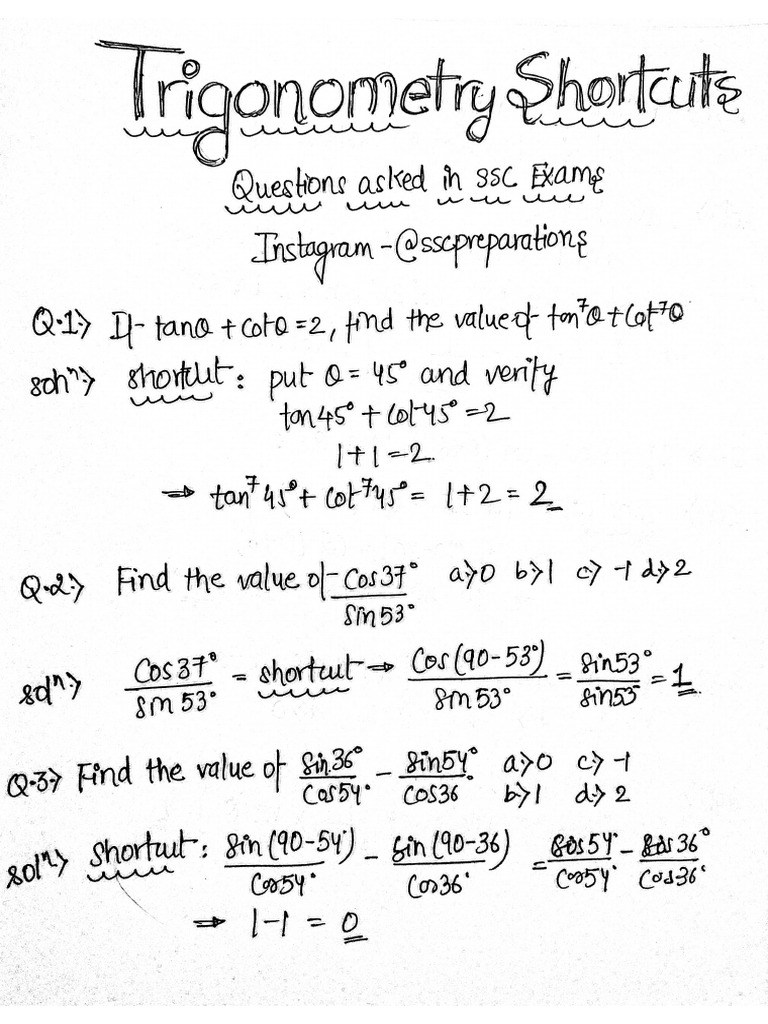 Trigonometry Shortcuts
Questions asked in SSC Exams
Instagram - @sscpreparations
Q.1:> If tanθ + cotθ = 2, find the value of tan⁷θ + cot⁷θ
soln:> shortcut: put θ = 45° and verify
tan45° + cot45° = 2
1 + 1 = 2
⇒ tan⁷45° + cot⁷45° = 1 + 2 = 2
Q.2:> Find the value of cos37°/sin53° a:>0 b:>1 c:>-1 d:>2
solⁿ:> cos37°/sin53° = shortcut → cos(90-53°)/sin53° = sin53°/sin53 = 1
Q.3:> Find the value of sin36°/cos54° - sin54°/cos36 a:>0 c:>-1
b:>1 d:>2
solⁿ:> shortcut: sin(90-54°)/cos54° - sin(90-36)/cos36° = cos54°/cos54° - cos36°/cos36°
⇒ 1-1 = 0